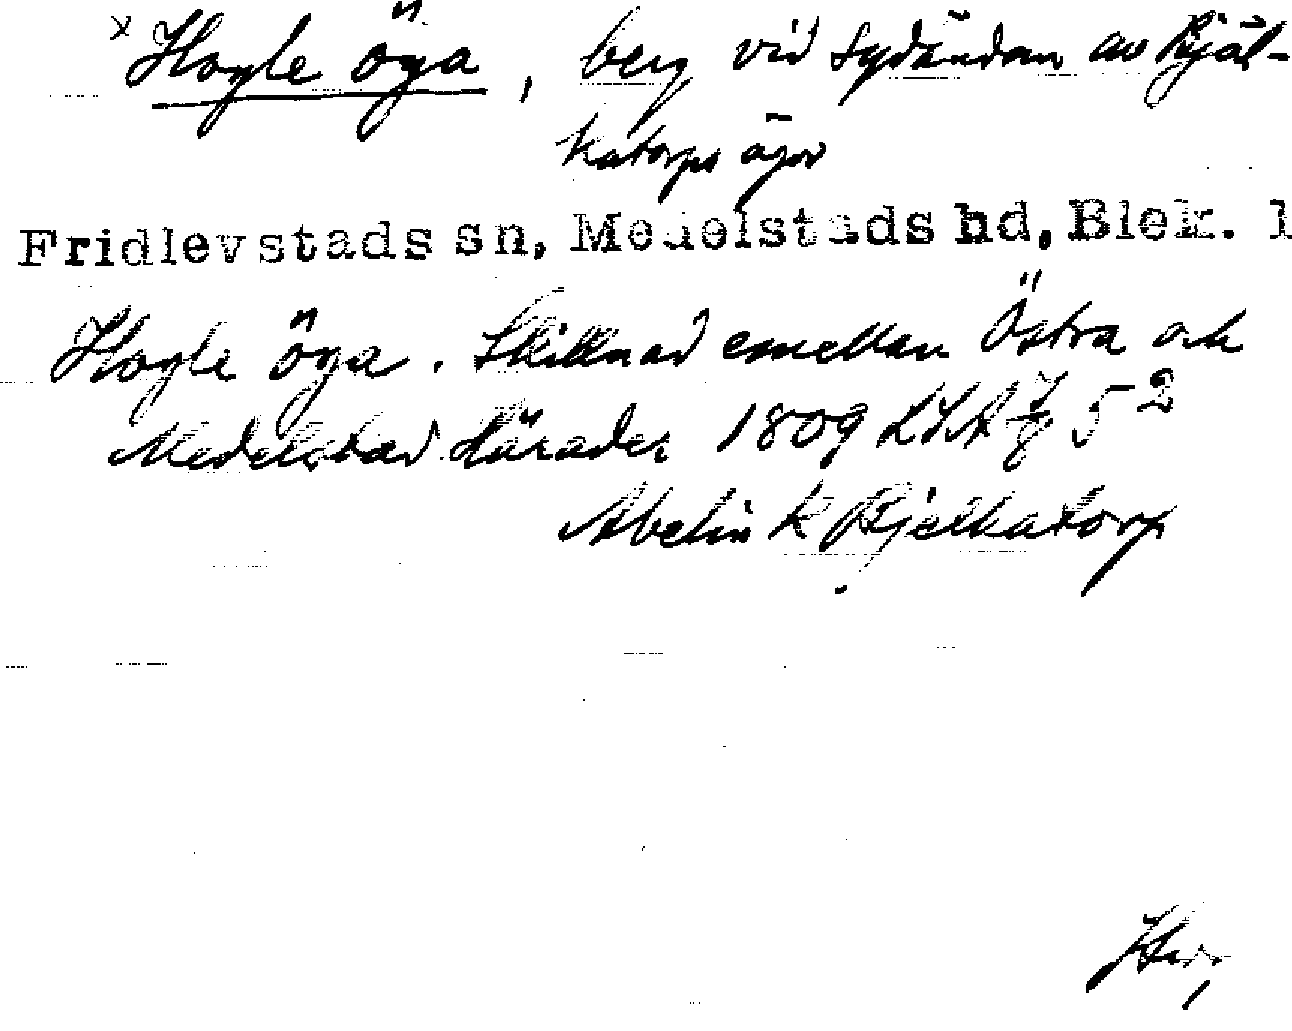 x Hogle öga, berg vid sydändan av Bjäl-
katorps ägor
Fridlevstads sn, Medelstads hd, Blek. l
Hogle öga. Skillnad emellan Östra och
Medelstad Härader 1809 LSA 5 2
Abelin K Bjelkatorp